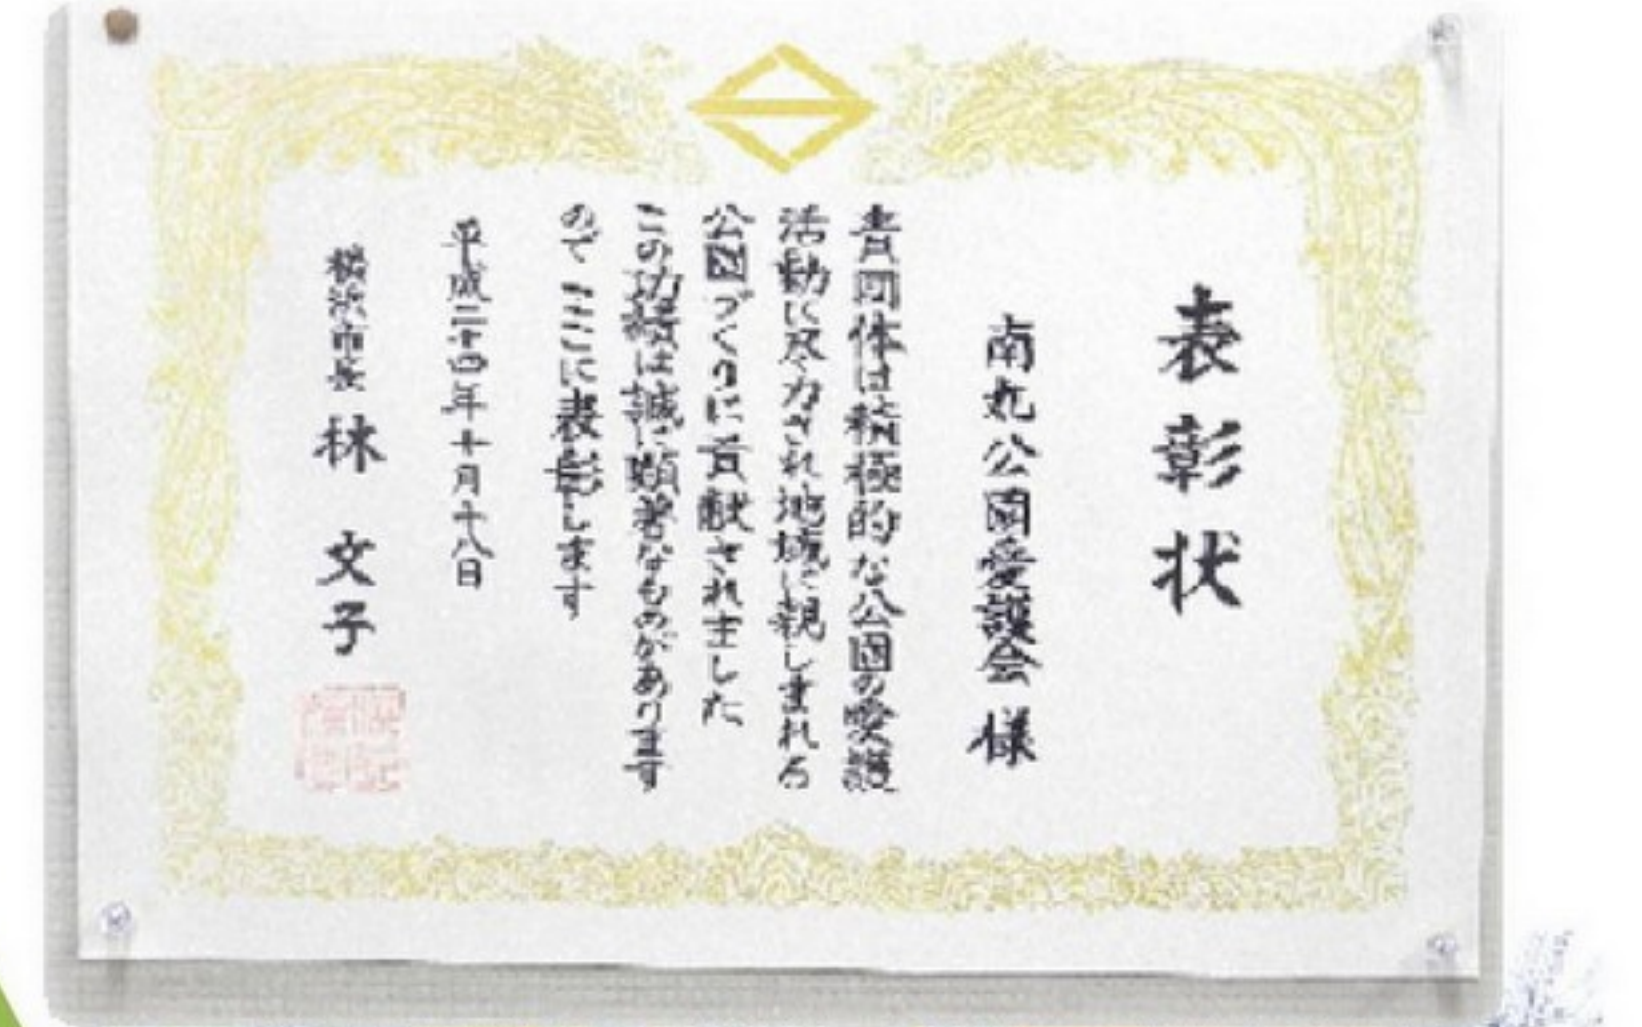 表彰状
南丸公園愛護会 様
貴団体は積極的な公園の愛護
活動に尽力され地域に親しまれる
公園づくりに貢献されました
この功績は誠に顕著なものがあります
ので ここに表彰します
平成二十四年十月十八日
横浜市長 林 文子